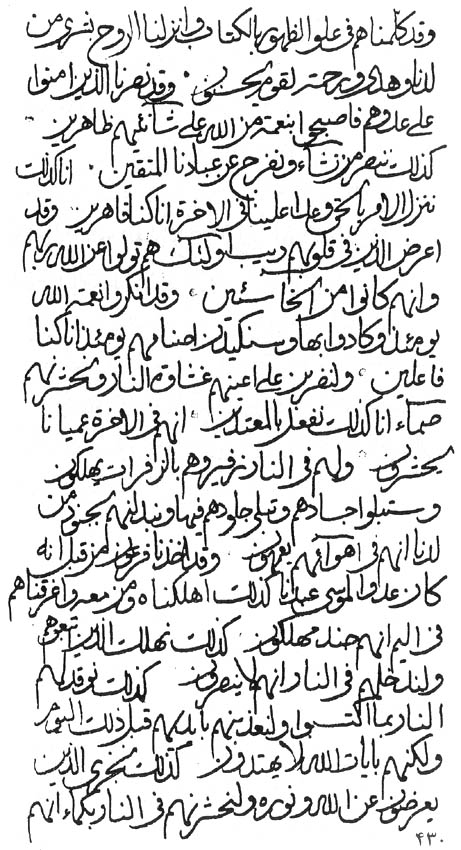 وقد كلمناهم فى علو الظهور بالكتاب وانزلنا الروح بشرى من
لدنا وهدى ورحمة لقوم يحبون وقد نصرنا الذين امنوا
على عدوهم فاصبحوا بنعمة من الله على شآنئهم ظاهرين
كذلك ننصر من نشآء ونفرج عن عبادنا المتقين انا كذلك
ننزل الامر بالحق وعدا علينا فى الاخرة انا كنا قاهرين وقد
اعرض الذين فى قلوبهم ريب اولئك هم تولوا عن الله ربهم
وانهم كانوا من الخآسئين وقد انكروا نعمة الله
يومئذ وكادوا بها وسنكيدن اصنامهم يومئذ انا كنا
فاعلين ولنضربن على اعينهم غشاوة النار ونحشرنهم
صمآء انا كذلك نفعل بالمعتدين انهم فى الاخرة عميانا
يحشرون ولهم فى النار زفير وهم بالزفرات يهلكون
وستبلوا اجسادهم وتبلى جلودهم فيها ونبدلنهم بجنود من
لدنا انهم فى اهوآئهم يعمهون وقد اخذنا فرعون من قبل انه
كان عدوا لموسى عبدنا كذلك اهلكناه ومن معه واغرقناهم
فى اليم انهم جند مهلكون كذلك نهلك الذين تبعوهم
ولندخلهم فى النار انهم لا ينصرون كذلك نوقد لهم
النار بما اكتسبوا ولنعذبنهم بايديهم قبل ذلك اليوم
ولكنهم بايات الله لا يهتدون كذلك نجزى الذين
يعرضون عن الله ونوره ولنحشرنهم فى النار بكمآء انهم
۴۳۰